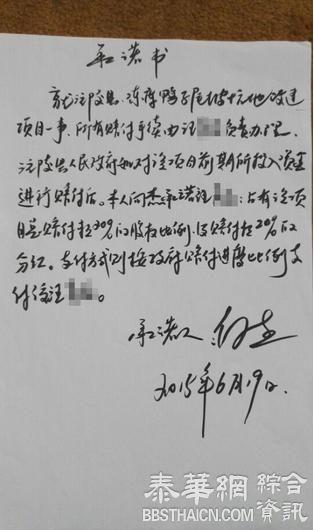 承诺书
项目一事,所有赔付手续由汪 负责办理。
沅陵县人民政府如对该项目前期所投入资金
进行赔付后。本人向杰承诺汪 :占有该项
目总赔付款20%的股权比例,得赔付款20%的
分红。支付方式则按政府赔付进度比例支
付给汪 。
承诺人:向杰
2015年6月19日.
泰華網 綜合資訊
BBSTHAICN.COM